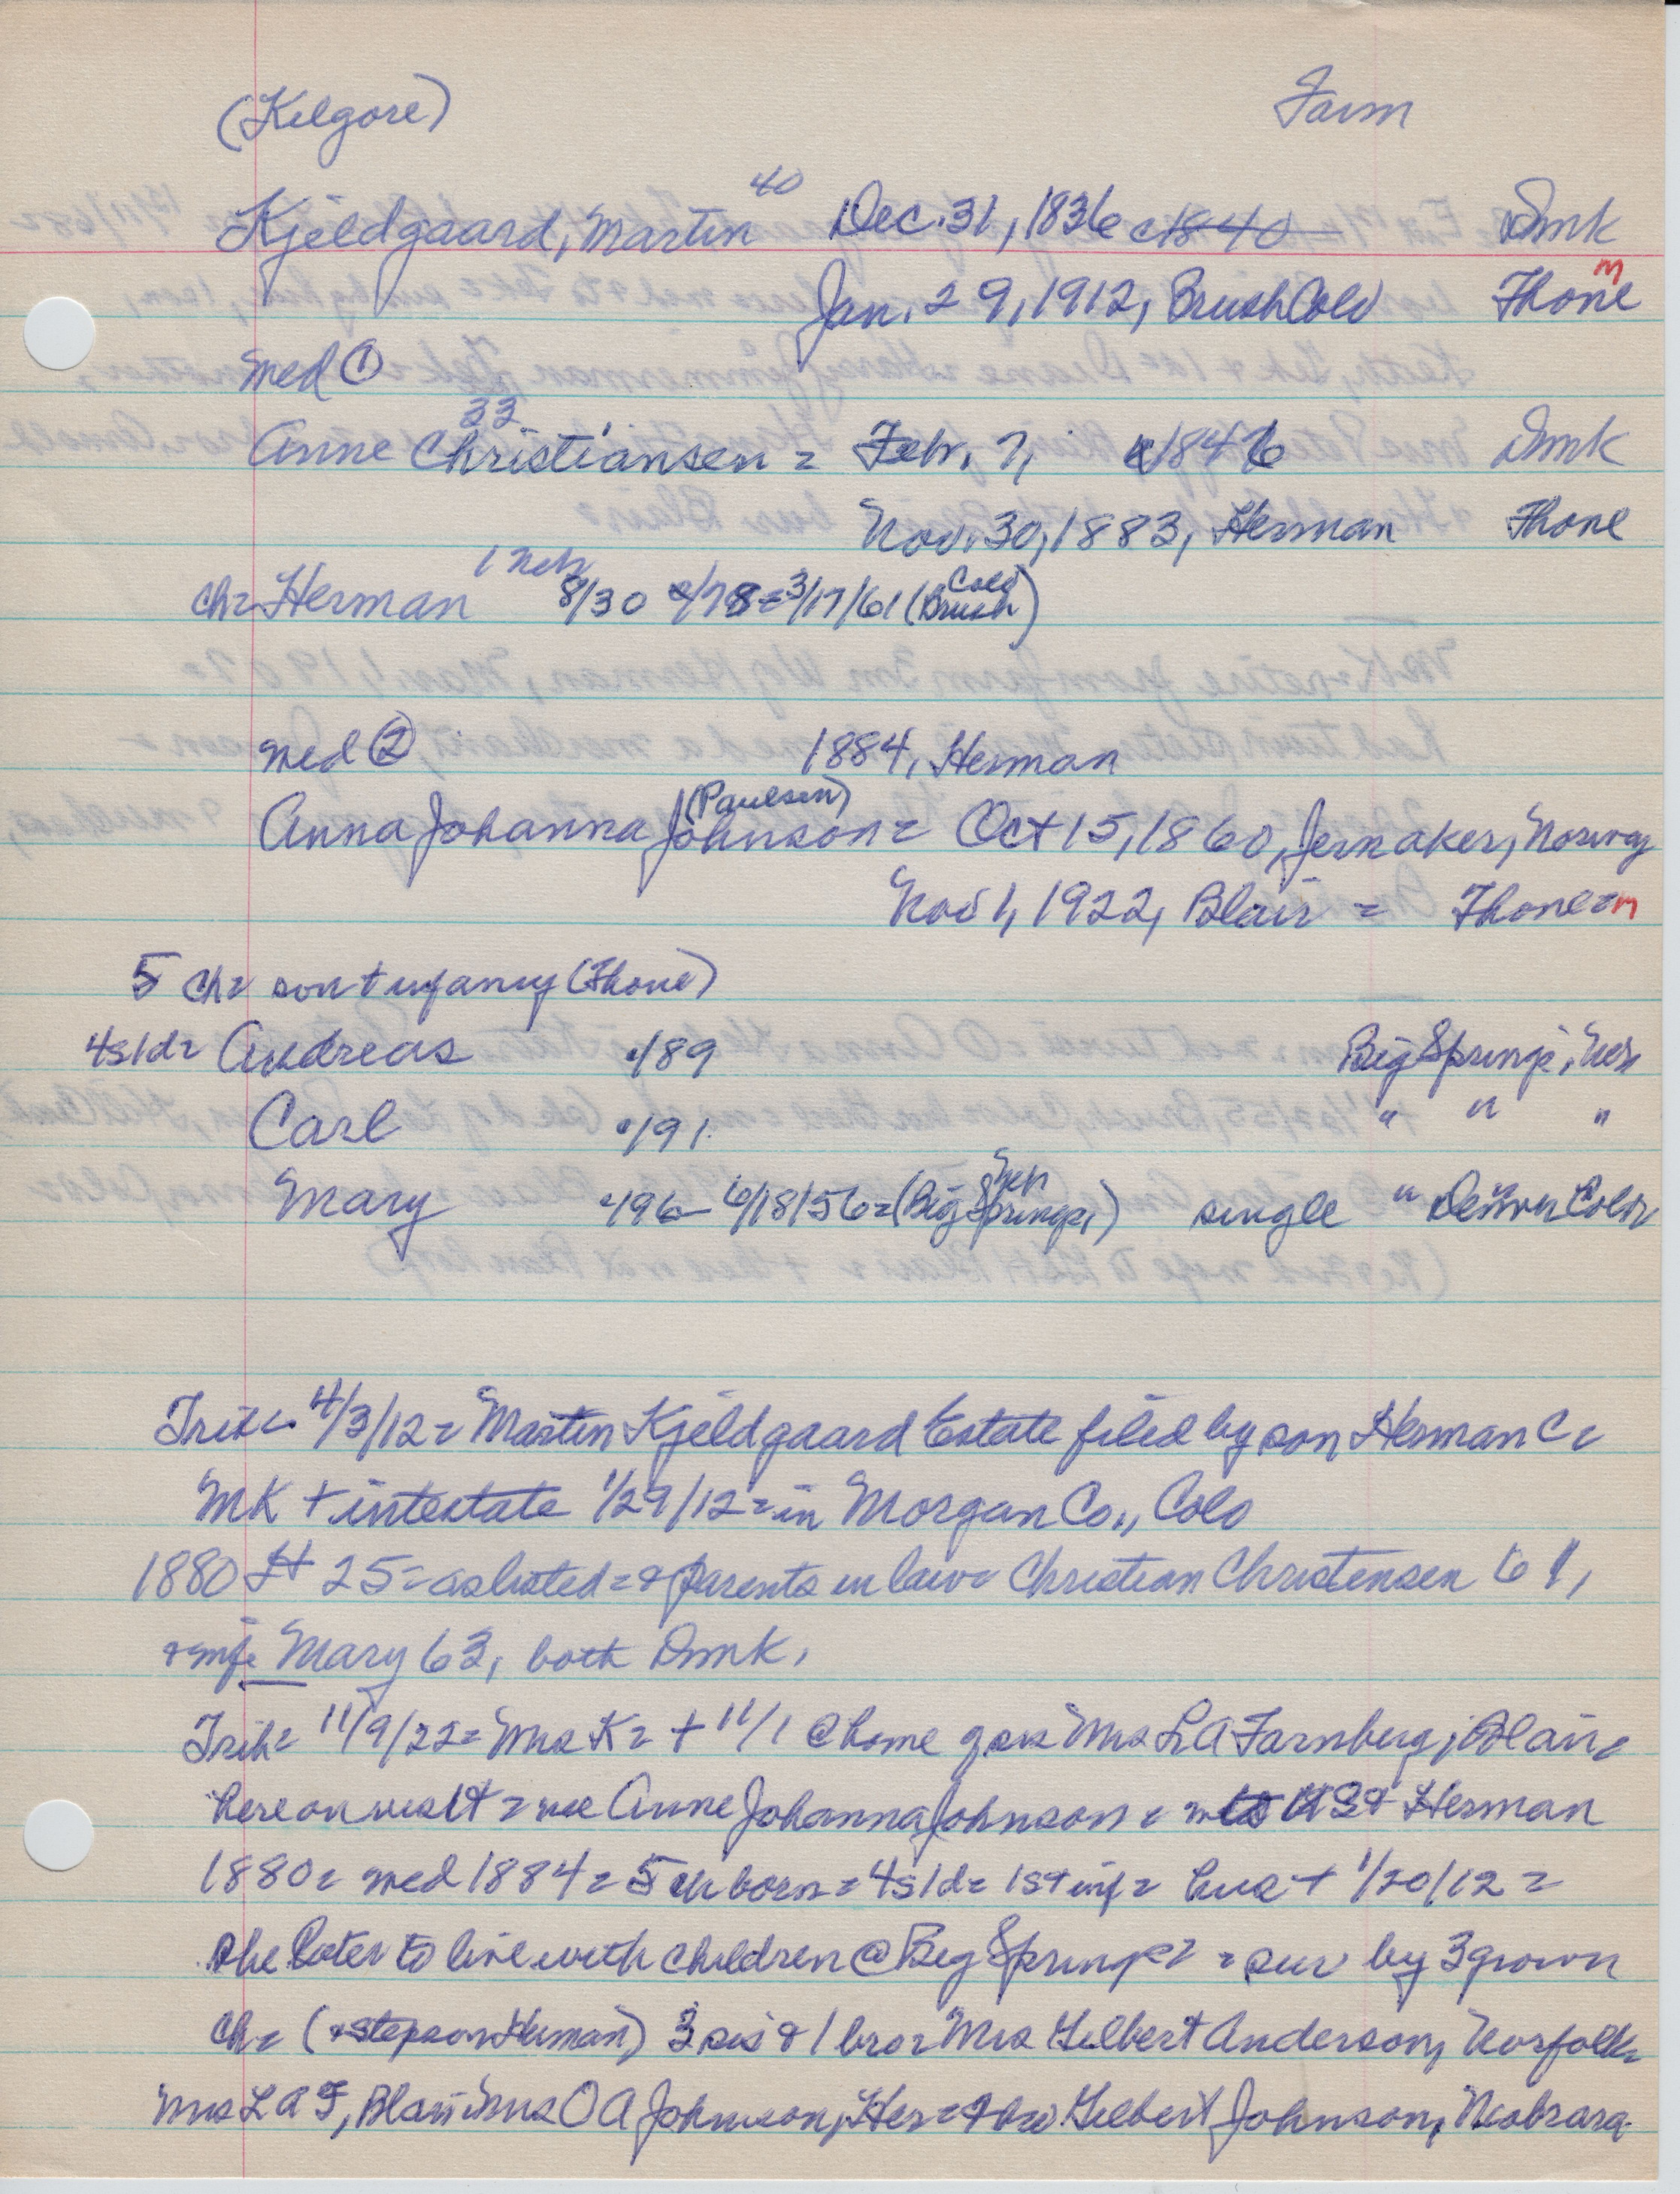 (Kilgore) Farm
Kjeldgaard, Martin 40 Dec. 31, 1836 c1840 Dmk
Jan. 29, 1912, Brush Colo Fhone m
med ①
Anne Christiansen = 33 Febr. 7, c1846 Dmk
Nov. 30, 1883, Herman Fhone
ch= Herman 1 Neb 8/30 /78 = 3/17/61 (Brush Colo)
med ② 1884, Herman
Anna Johanna Johnson = (Paulsen) Oct 15, 1860, Jernaker, Norway
Nov 1, 1922, Blair = Fhone = m
5 ch= son + infancy (Fhone)
4s1d= Andreas c/89 Big Springs, Neb
Carl c/91 " " "
Mary c/96 - 6/18/56 = (Big Springs, Neb) single " Denver Colo
Trib= 4/3/12 = Martin Kjeldgaard Estate filed by son Herman C=
MK + intestate 1/29/12 = in Morgan Co., Colo
1880 H 25 = as listed = & parents in law = Christian Christensen 61,
& wife Mary 63, both Dmk,
Trib= 11/9/22 = Mrs K= + 11/1 @ home of sis Mrs LA Farnberg, Blair=
here on visit = nee Anne Johanna Johnson = to US & Herman
1880 = med 1884 = 5 ch born = 4s1d = 1s + inf = hus + 1/20/12 =
she later to live with children @ Big Springs = sur by 3 grown
ch= (& stepson Herman) 3 sis & 1 bro= Mrs Gilbert Anderson, Norfolk=
Mrs LAF, Blair= Mrs OA Johnson, Her= & bro Gilbert Johnson, Niobrara